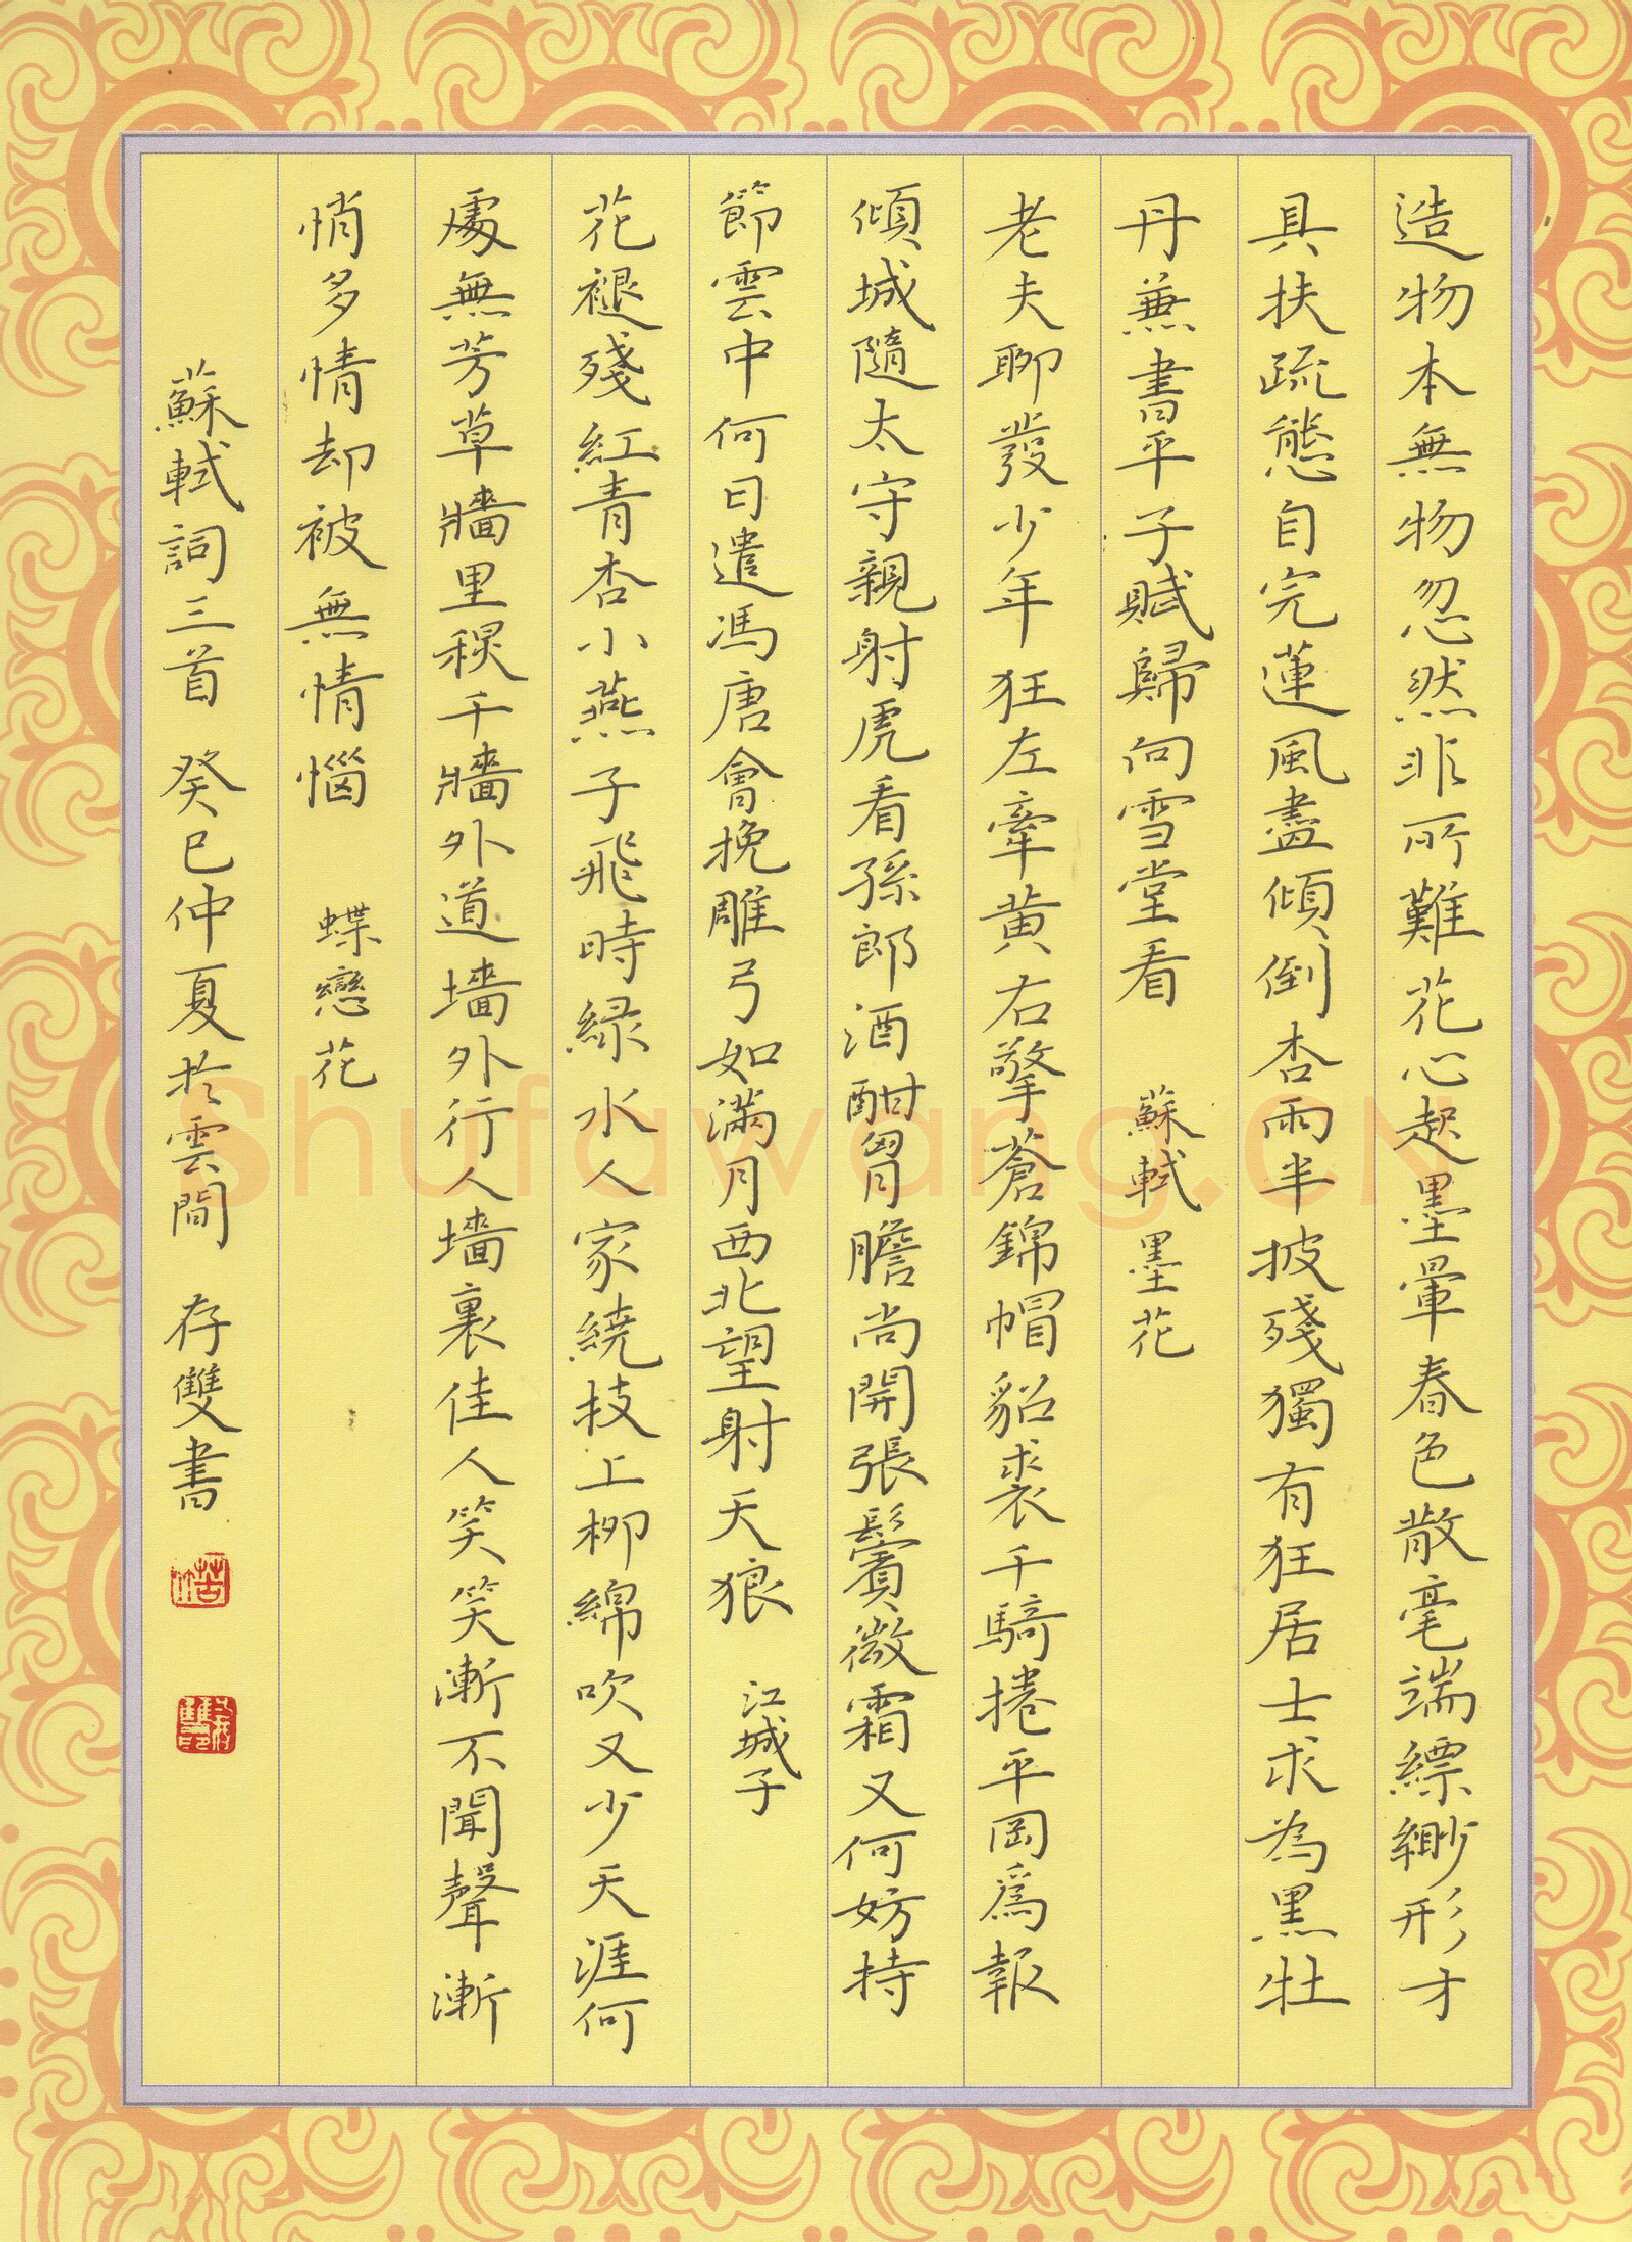 造物本無物忽然非所難花心起墨暈春色散毫端縹緲形才
具扶疏態自完蓮風盡傾倒杏雨半披殘獨有狂居士求為黑牡
丹兼書平子賦歸向雪堂看 蘇軾 墨花
老夫聊發少年狂左牽黃右擎蒼錦帽貂裘千騎捲平岡爲報
傾城隨太守親射虎看孫郎酒酣胷膽尚開張鬢微霜又何妨持
節雲中何日遣馮唐會挽雕弓如滿月西北望射天狼 江城子
花褪殘紅青杏小燕子飛時緑水人家繞技上柳綿吹又少天涯何
處無芳草牆里鞦千牆外道墻外行人墻裏佳人笑笑漸不聞聲漸
悄多情却被無情惱 蝶戀花
蘇軾詞三首 癸巳仲夏於雲間 存雙書
Shufawang.CN